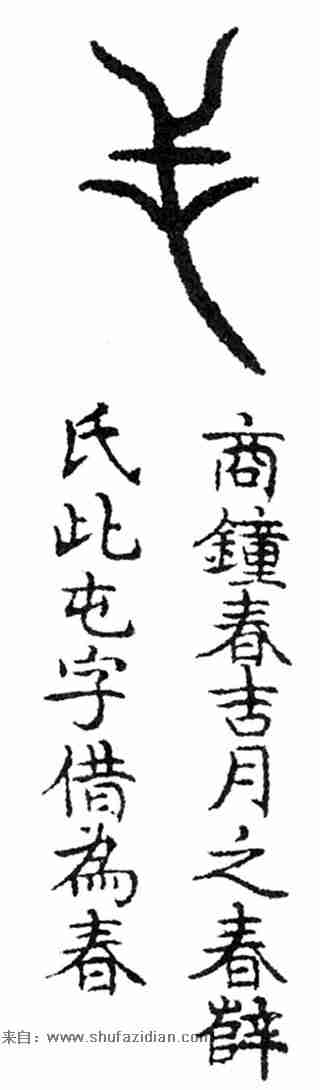 商鐘春吉月之春薛
氏此屯字借為春
来自：www.shufazidian.com